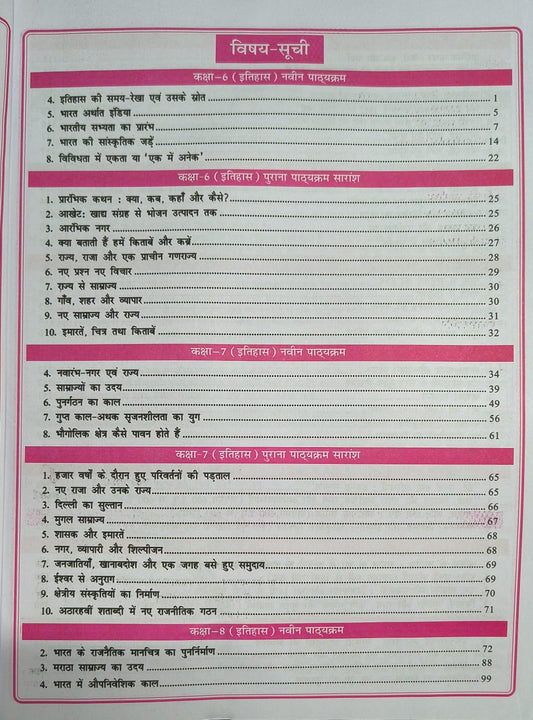 विषय-सूची
कक्षा-6 ( इतिहास ) नवीन पाठ्यक्रम
4. इतिहास की समय-रेखा एवं उसके स्रोत 1
5. भारत अर्थात इंडिया 5
6. भारतीय सभ्यता का प्रारंभ 7
7. भारत की सांस्कृतिक जड़ें 14
8. विविधता में एकता या 'एक में अनेक' 22
कक्षा-6 ( इतिहास ) पुराना पाठ्यक्रम सारांश
1. प्रारंभिक कथन : क्या, कब, कहाँ और कैसे? 25
2. आखेट: खाद्य संग्रह से भोजन उत्पादन तक 25
3. आरंभिक नगर 26
4. क्या बताती हैं हमें किताबें और कब्रें 27
5. राज्य, राजा और एक प्राचीन गणराज्य 28
6. नए प्रश्न नए विचार 29
7. राज्य से साम्राज्य 30
8. गाँव, शहर और व्यापार 30
9. नए साम्राज्य और राज्य 31
10. इमारतें, चित्र तथा किताबें 32
कक्षा-7 ( इतिहास ) नवीन पाठ्यक्रम
4. नवारंभ-नगर एवं राज्य 34
5. साम्राज्यों का उदय 39
6. पुनर्गठन का काल 49
7. गुप्त काल-अथक सृजनशीलता का युग 56
8. भौगोलिक क्षेत्र कैसे पावन होते हैं 61
कक्षा-7 ( इतिहास ) पुराना पाठ्यक्रम सारांश
1. हजार वर्षों के दौरान हुए परिवर्तनों की पड़ताल 65
2. नए राजा और उनके राज्य 65
3. दिल्ली का सुल्तान 66
4. मुगल साम्राज्य 67
5. शासक और इमारतें 68
6. नगर, व्यापारी और शिल्पीजन 68
7. जनजातियाँ, खानाबदोश और एक जगह बसे हुए समुदाय 69
8. ईश्वर से अनुराग 69
9. क्षेत्रीय संस्कृतियों का निर्माण 70
10. अठारहवीं शताब्दी में नए राजनीतिक गठन 71
कक्षा-8 ( इतिहास ) नवीन पाठ्यक्रम
2. भारत के राजनैतिक मानचित्र का पुनर्निर्माण 72
3. मराठा साम्राज्य का उदय 88
4. भारत में औपनिवेशिक काल 99